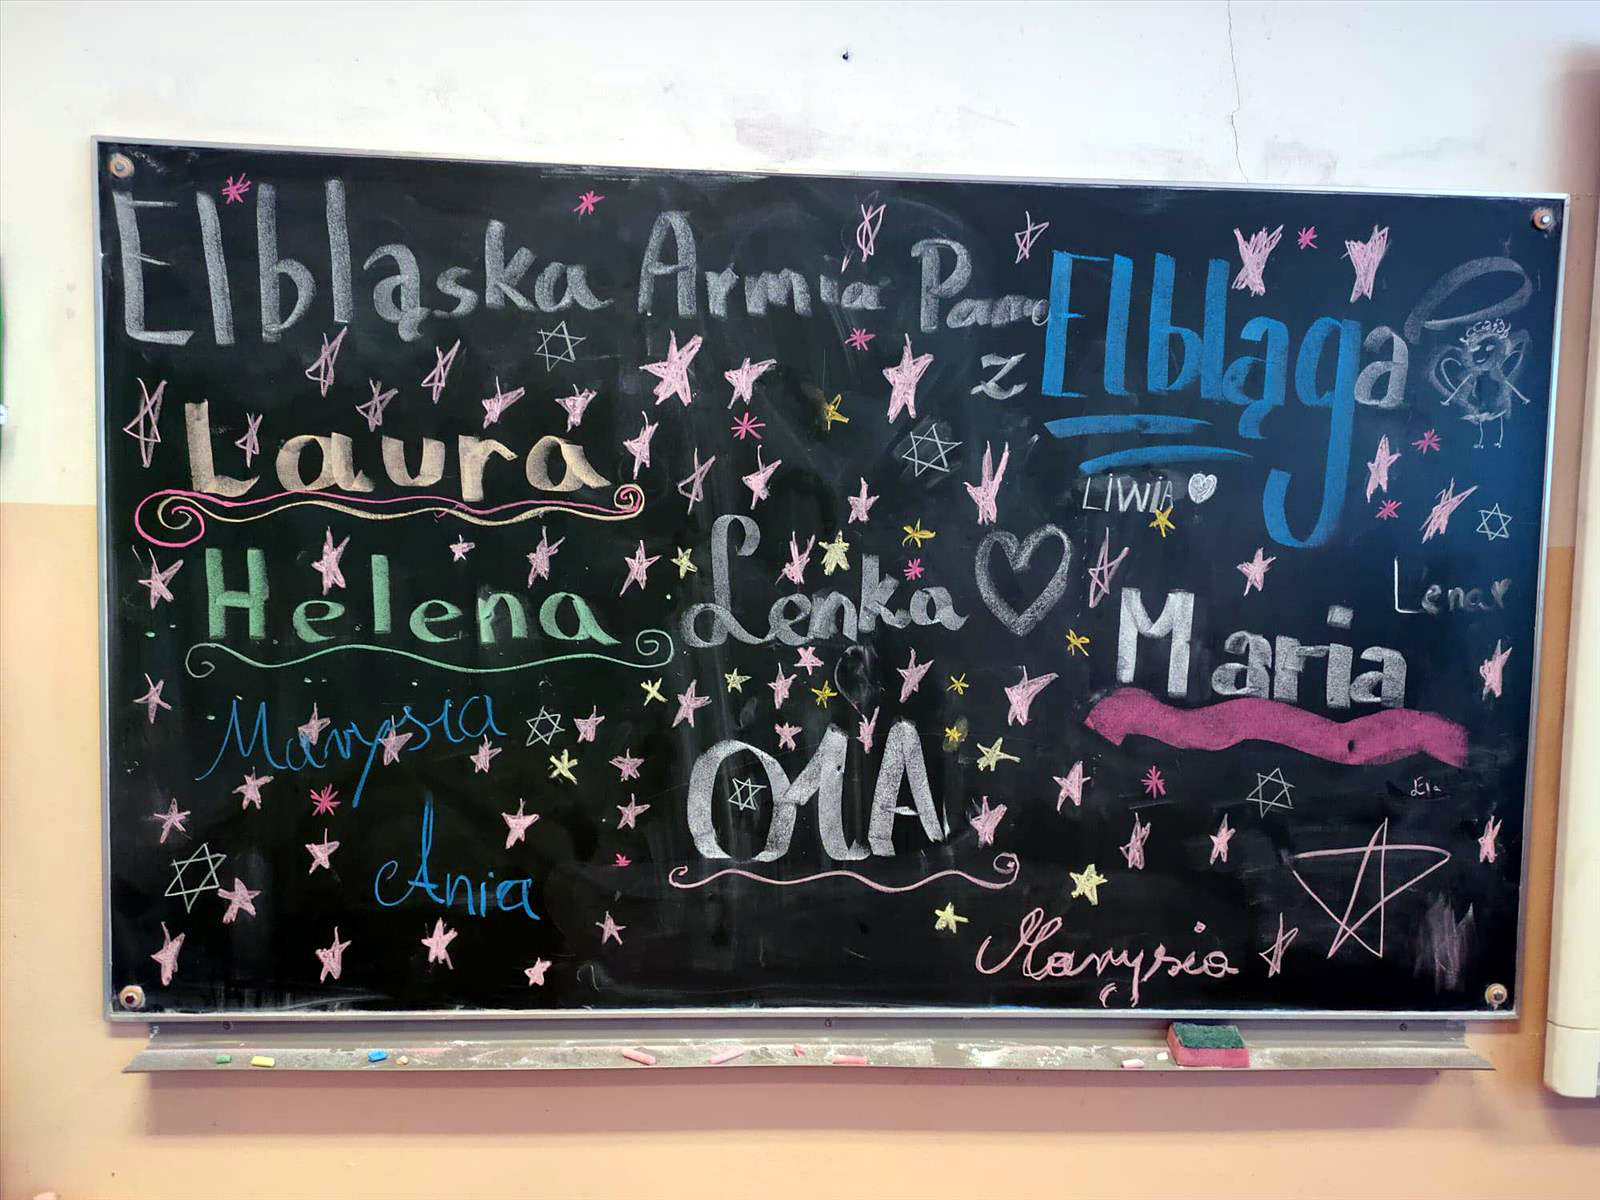 Elbląska Armia Pana
z Elbląga
LIWIA
Laura
Helena
Lenka
Lena
Maria
Marysia
OLA
Ela
Ania
Marysia